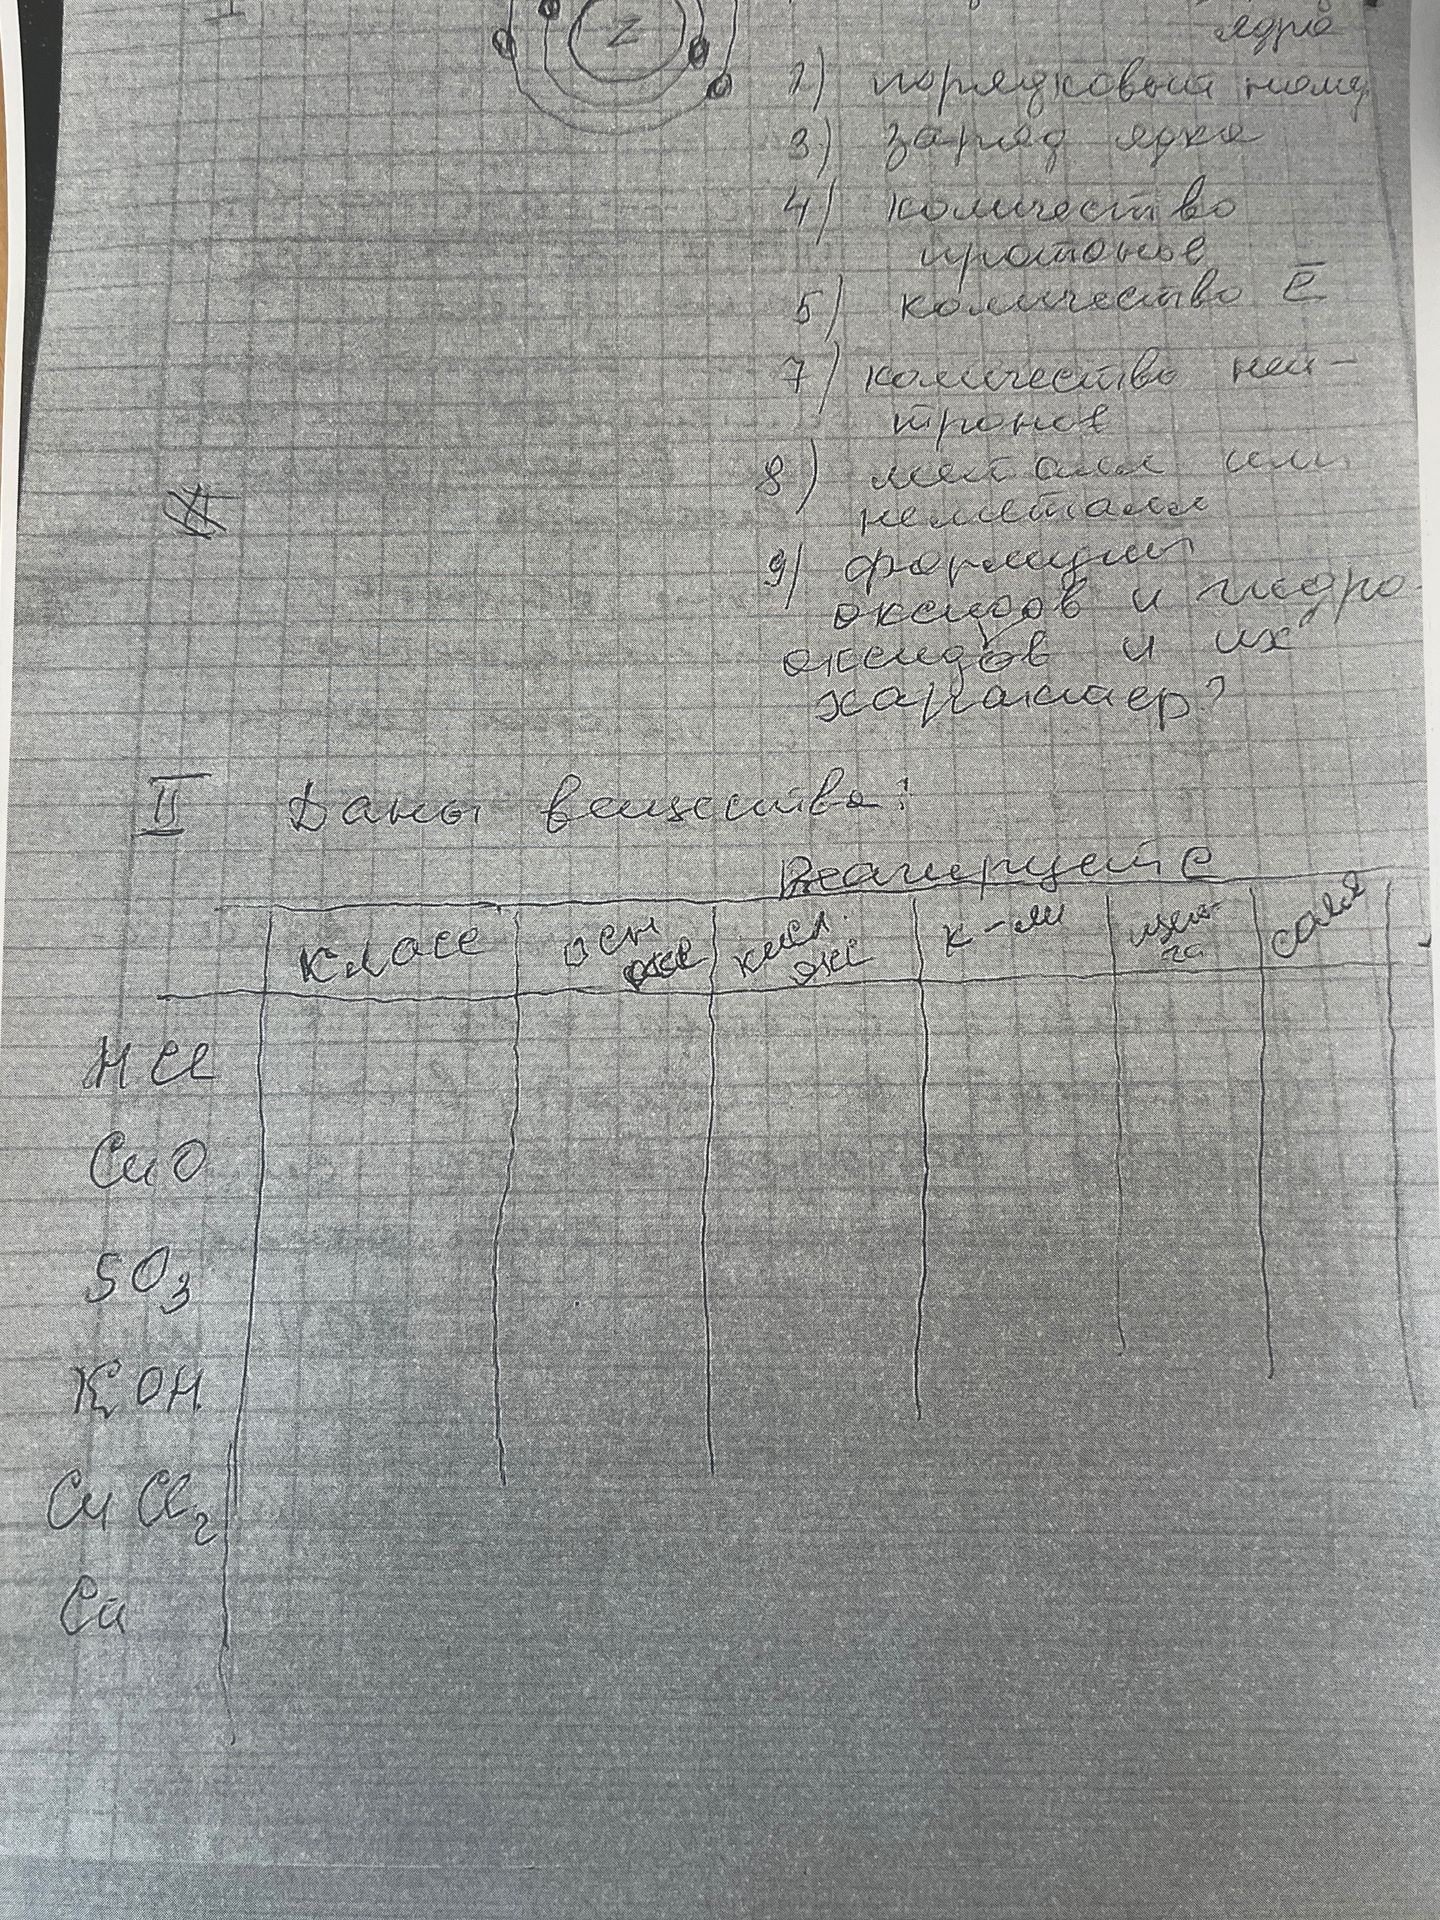 I
Z
ядра
2) порядковый номер
3) заряд ядра
4) количество
протонов
5) количество e̅
7) количество ней-
тронов
8) металл или
неметалл
9) формулы
оксидов и гидро-
оксидов и их
характер?
II Даны вещества:
Реагирует с
класс осн окс кисл. окс к-ми щел- соля
HCl
CuO
SO3
KOH
CuCl2
Cu